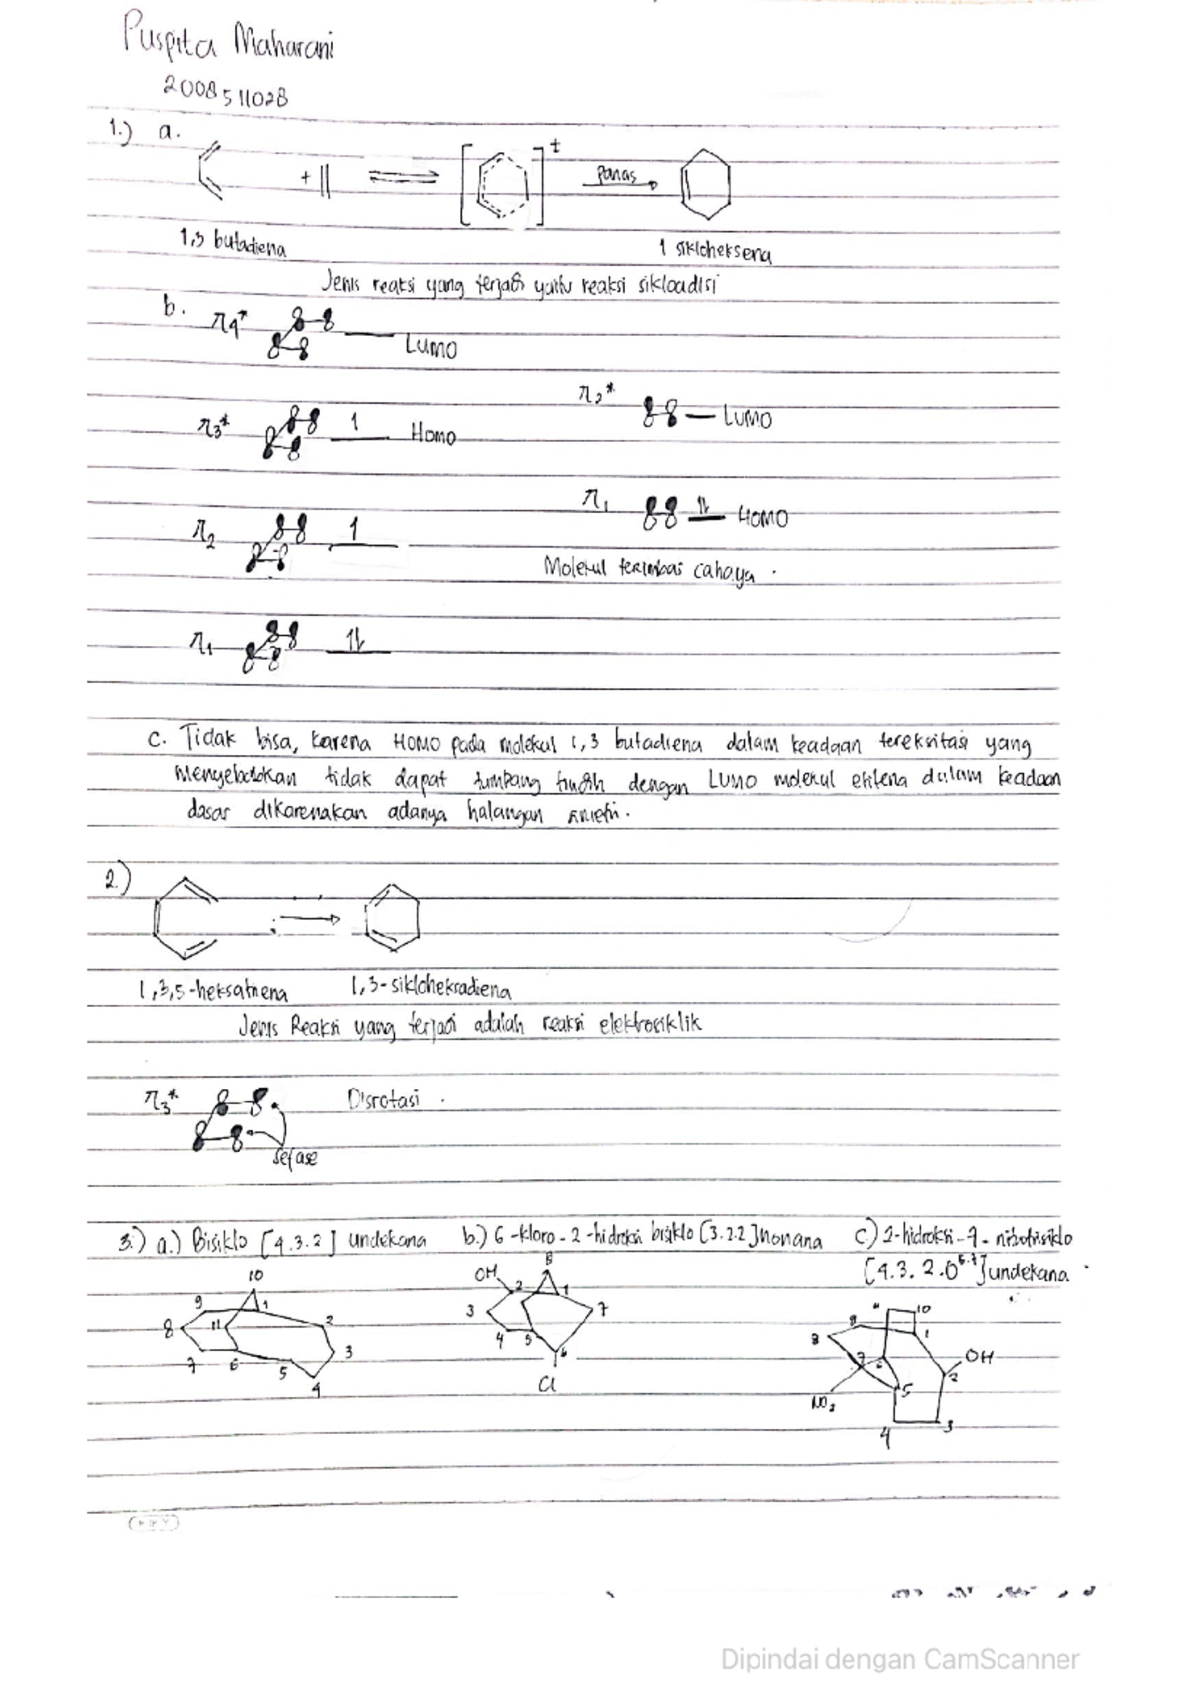 Puspita Maharani
2008511028
1.) a.
+ ‡ panas
1,3 butadiena 1 sikloheksena
Jenis reaksi yang terjadi yaitu reaksi sikloadisi
b. π4* LUMO
π2* LUMO
π3* 1 Homo
π1 1⇂ HOMO
π2 1
Molekul terimbas cahaya.
π1 1⇂
c. Tidak bisa, karena HOMO pada molekul 1,3 butadiena dalam keadaan tereksitasi yang
menyebabkan tidak dapat tumpang tindih dengan LUMO molekul etilena dalam keadaan
dasar dikarenakan adanya halangan simetri.
2.)
1,3,5-heksatriena 1,3-sikloheksadiena
Jenis Reaksi yang terjadi adalah reaksi elektrosiklik
π3* Disrotasi.
sefase
3.) a.) Bisiklo [4.3.2] undekana b.) 6-kloro-2-hidroksi bisiklo [3.2.2] nonana c) 2-hidroksi-7-nitrotrisiklo
[4.3.2.0⁵·⁷] undekana.
10 9 1 2 8 11 3 7 6 5 4
OH 8 2 1 3 7 4 5 6 Cl
11 10 9 1 8 OH 7 6 2 5 NO2 3 4
Dipindai dengan CamScanner